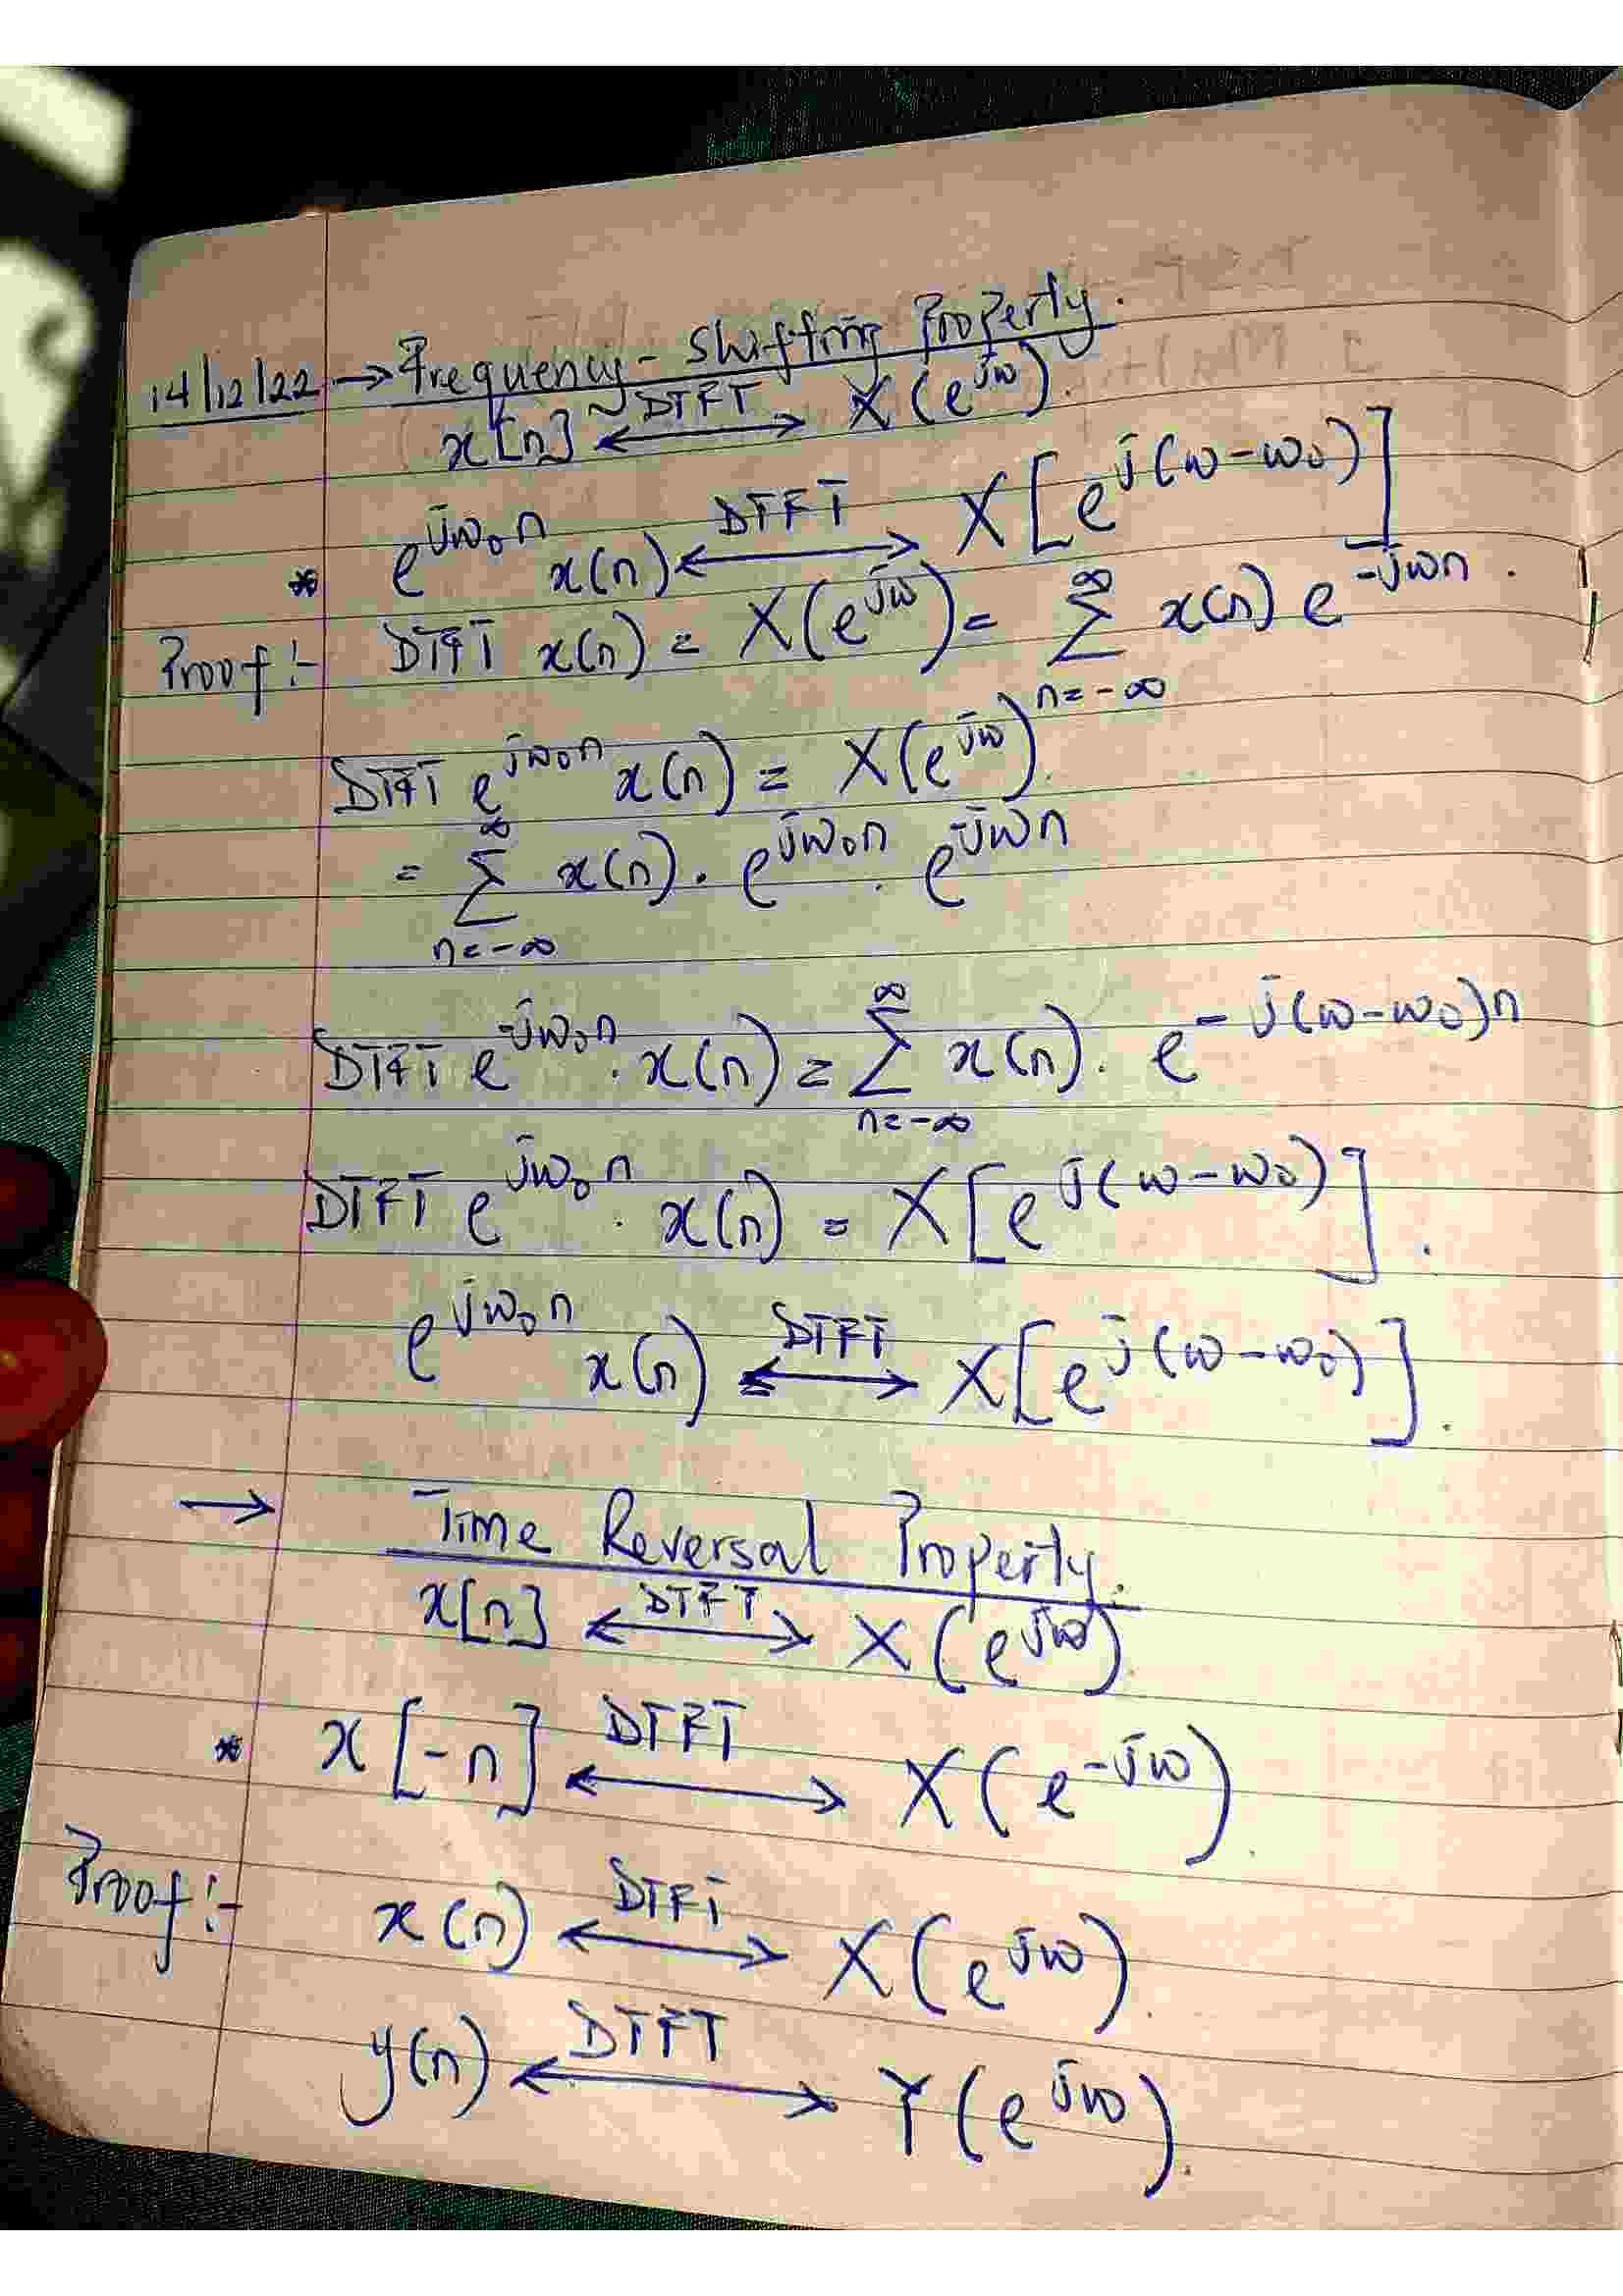 14/12/22 → Frequency - Shifting Property.
x[n] ←DTFT→ X(e^jω).
* e^jω₀n x(n) ←DTFT→ X[e^j(ω-ω₀)]
Proof :- DTFT x(n) = X(e^jω) = ∞ Σ n=-∞ x(n) e^-jωn .
DTFT e^jω₀n x(n) = X(e^jω).
= ∞ Σ n=-∞ x(n) . e^jω₀n . e^-jωn
DTFT e^-jω₀n . x(n) = ∞ Σ n=-∞ x(n) . e^-j(ω-ω₀)n
DTFT e^jω₀n . x(n) = X[e^j(ω-ω₀)] .
e^jω₀n x(n) ←DTFT→ X[e^j(ω-ω₀)] .
→ Time Reversal Property.
x[n] ←DTFT→ X(e^jω)
* x[-n] ←DTFT→ X(e^-jω).
Proof :- x(n) ←DTFT→ X(e^jω).
y(n) ←DTFT→ Y(e^jω).